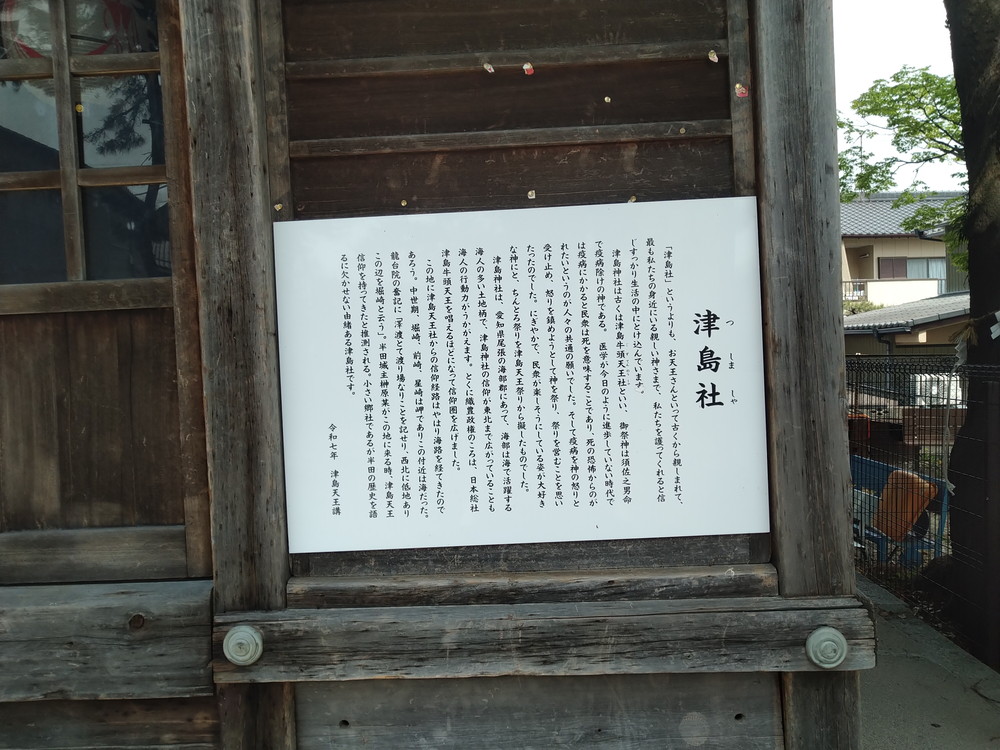 津島社
つしましゃ
「津島社」というよりも、お天王さんといって古くから親しまれて、
最も私たちの身近にいる親しい神さまで、私たちを護ってくれると信
じすっかり生活の中にとけ込んでいます。
津島神社は古くは津島牛頭天王社といい、御祭神は須佐之男命
で疫病除けの神である。医学が今日のように進歩していない時代で
は疫病にかかると民衆は死を意味することであり、死の恐怖からのか
れたいというのが人々の共通の願いでした。そして疫病を神の怒りと
受け止め、怒りを鎮めようとして神を祭り、祭りを営むことを思い
たったのでした。にぎやかで、民衆が楽しそうにしている姿が大好き
な神にと、ちんとろ祭りを津島天王祭りから擬したものでした。
津島神社は、愛知県尾張の海部郡にあって、海部は海で活躍する
海人の多い土地柄で、津島神社の信仰が東北まで広がっていることも
海人の行動力がうかがえます。とくに織豊政権のころは、日本総社
津島牛頭天王を唱えるほどになって信仰圏を広げました。
この地に津島天王社からの信仰経路はやはり海路を経てきたので
あろう。中世期、堀崎、前崎、星崎は岬でありこの付近は海だった。
龍台院の奮記に「澤渡とて渡り場なりことを記せり、西北に低地あり
この辺を堀崎と云う」。半田城主榊原某がこの地に来る時、津島天王
信仰を持ってきたと推測される。小さい郷社であるが半田の歴史を語
るに欠かせない由緒ある津島社です。
令和七年　津島天王講